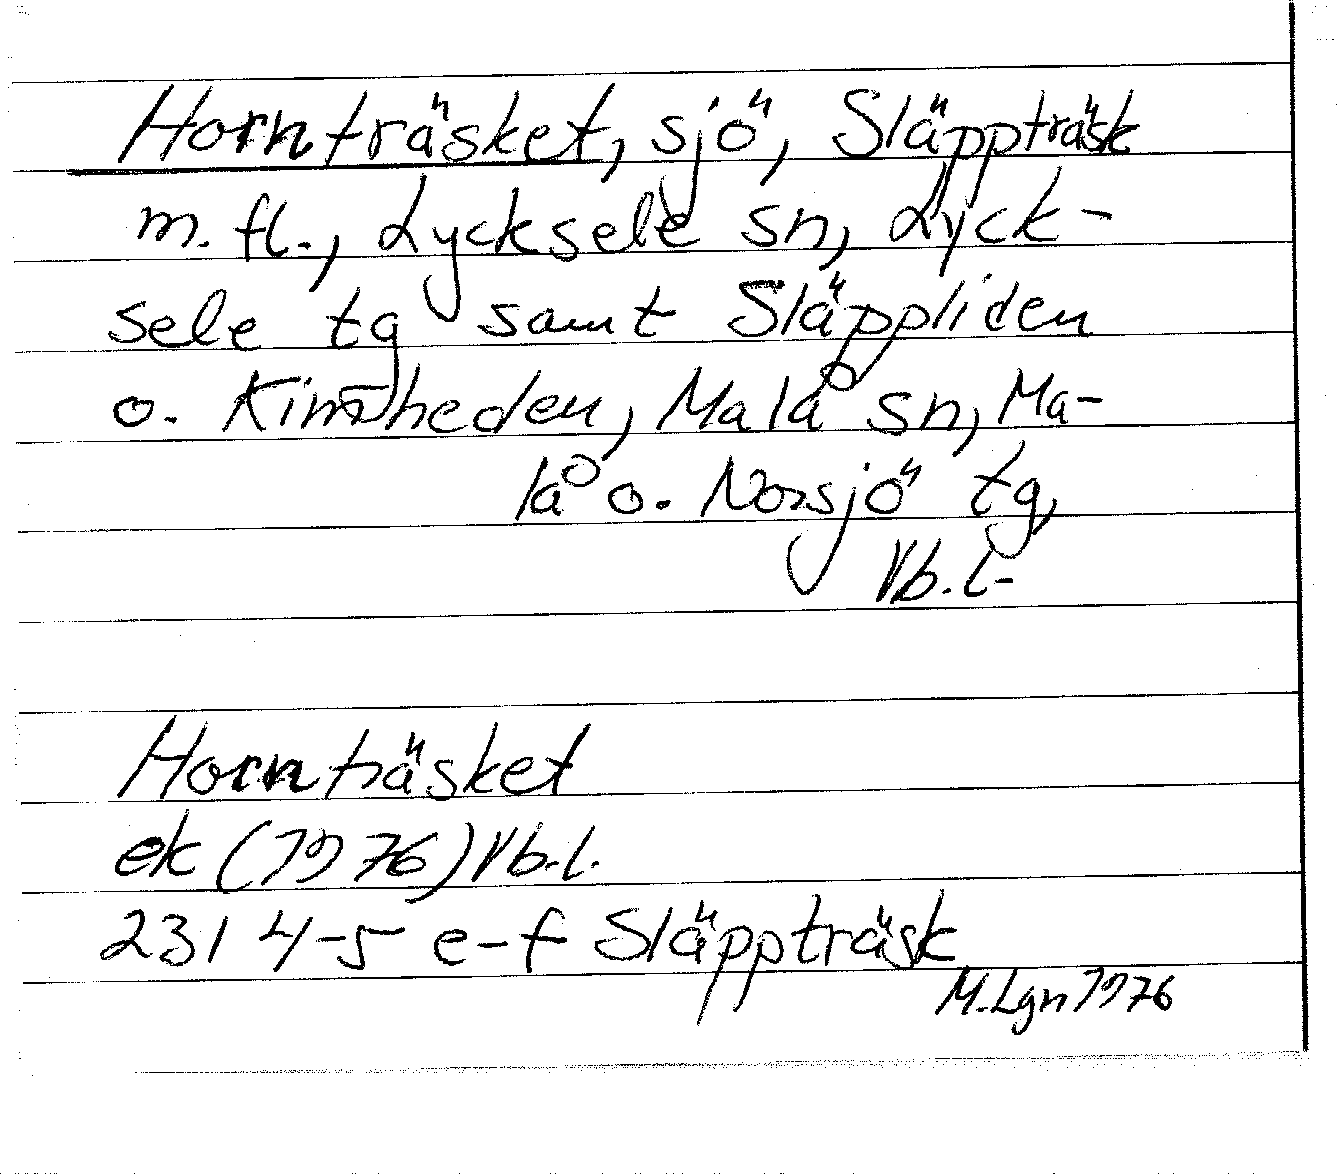 Hornträsket, sjö, Släppträsk
m. fl., Lycksele sn, Lyck-
sele tg samt Släppliden
o. Kimheden, Malå sn, Ma-
lå o. Norsjö tg,
Vb. l.
Hornträsket
ek (1976) Vb. l.
231 4-5 e-f Släppträsk
M. Lgn 1976